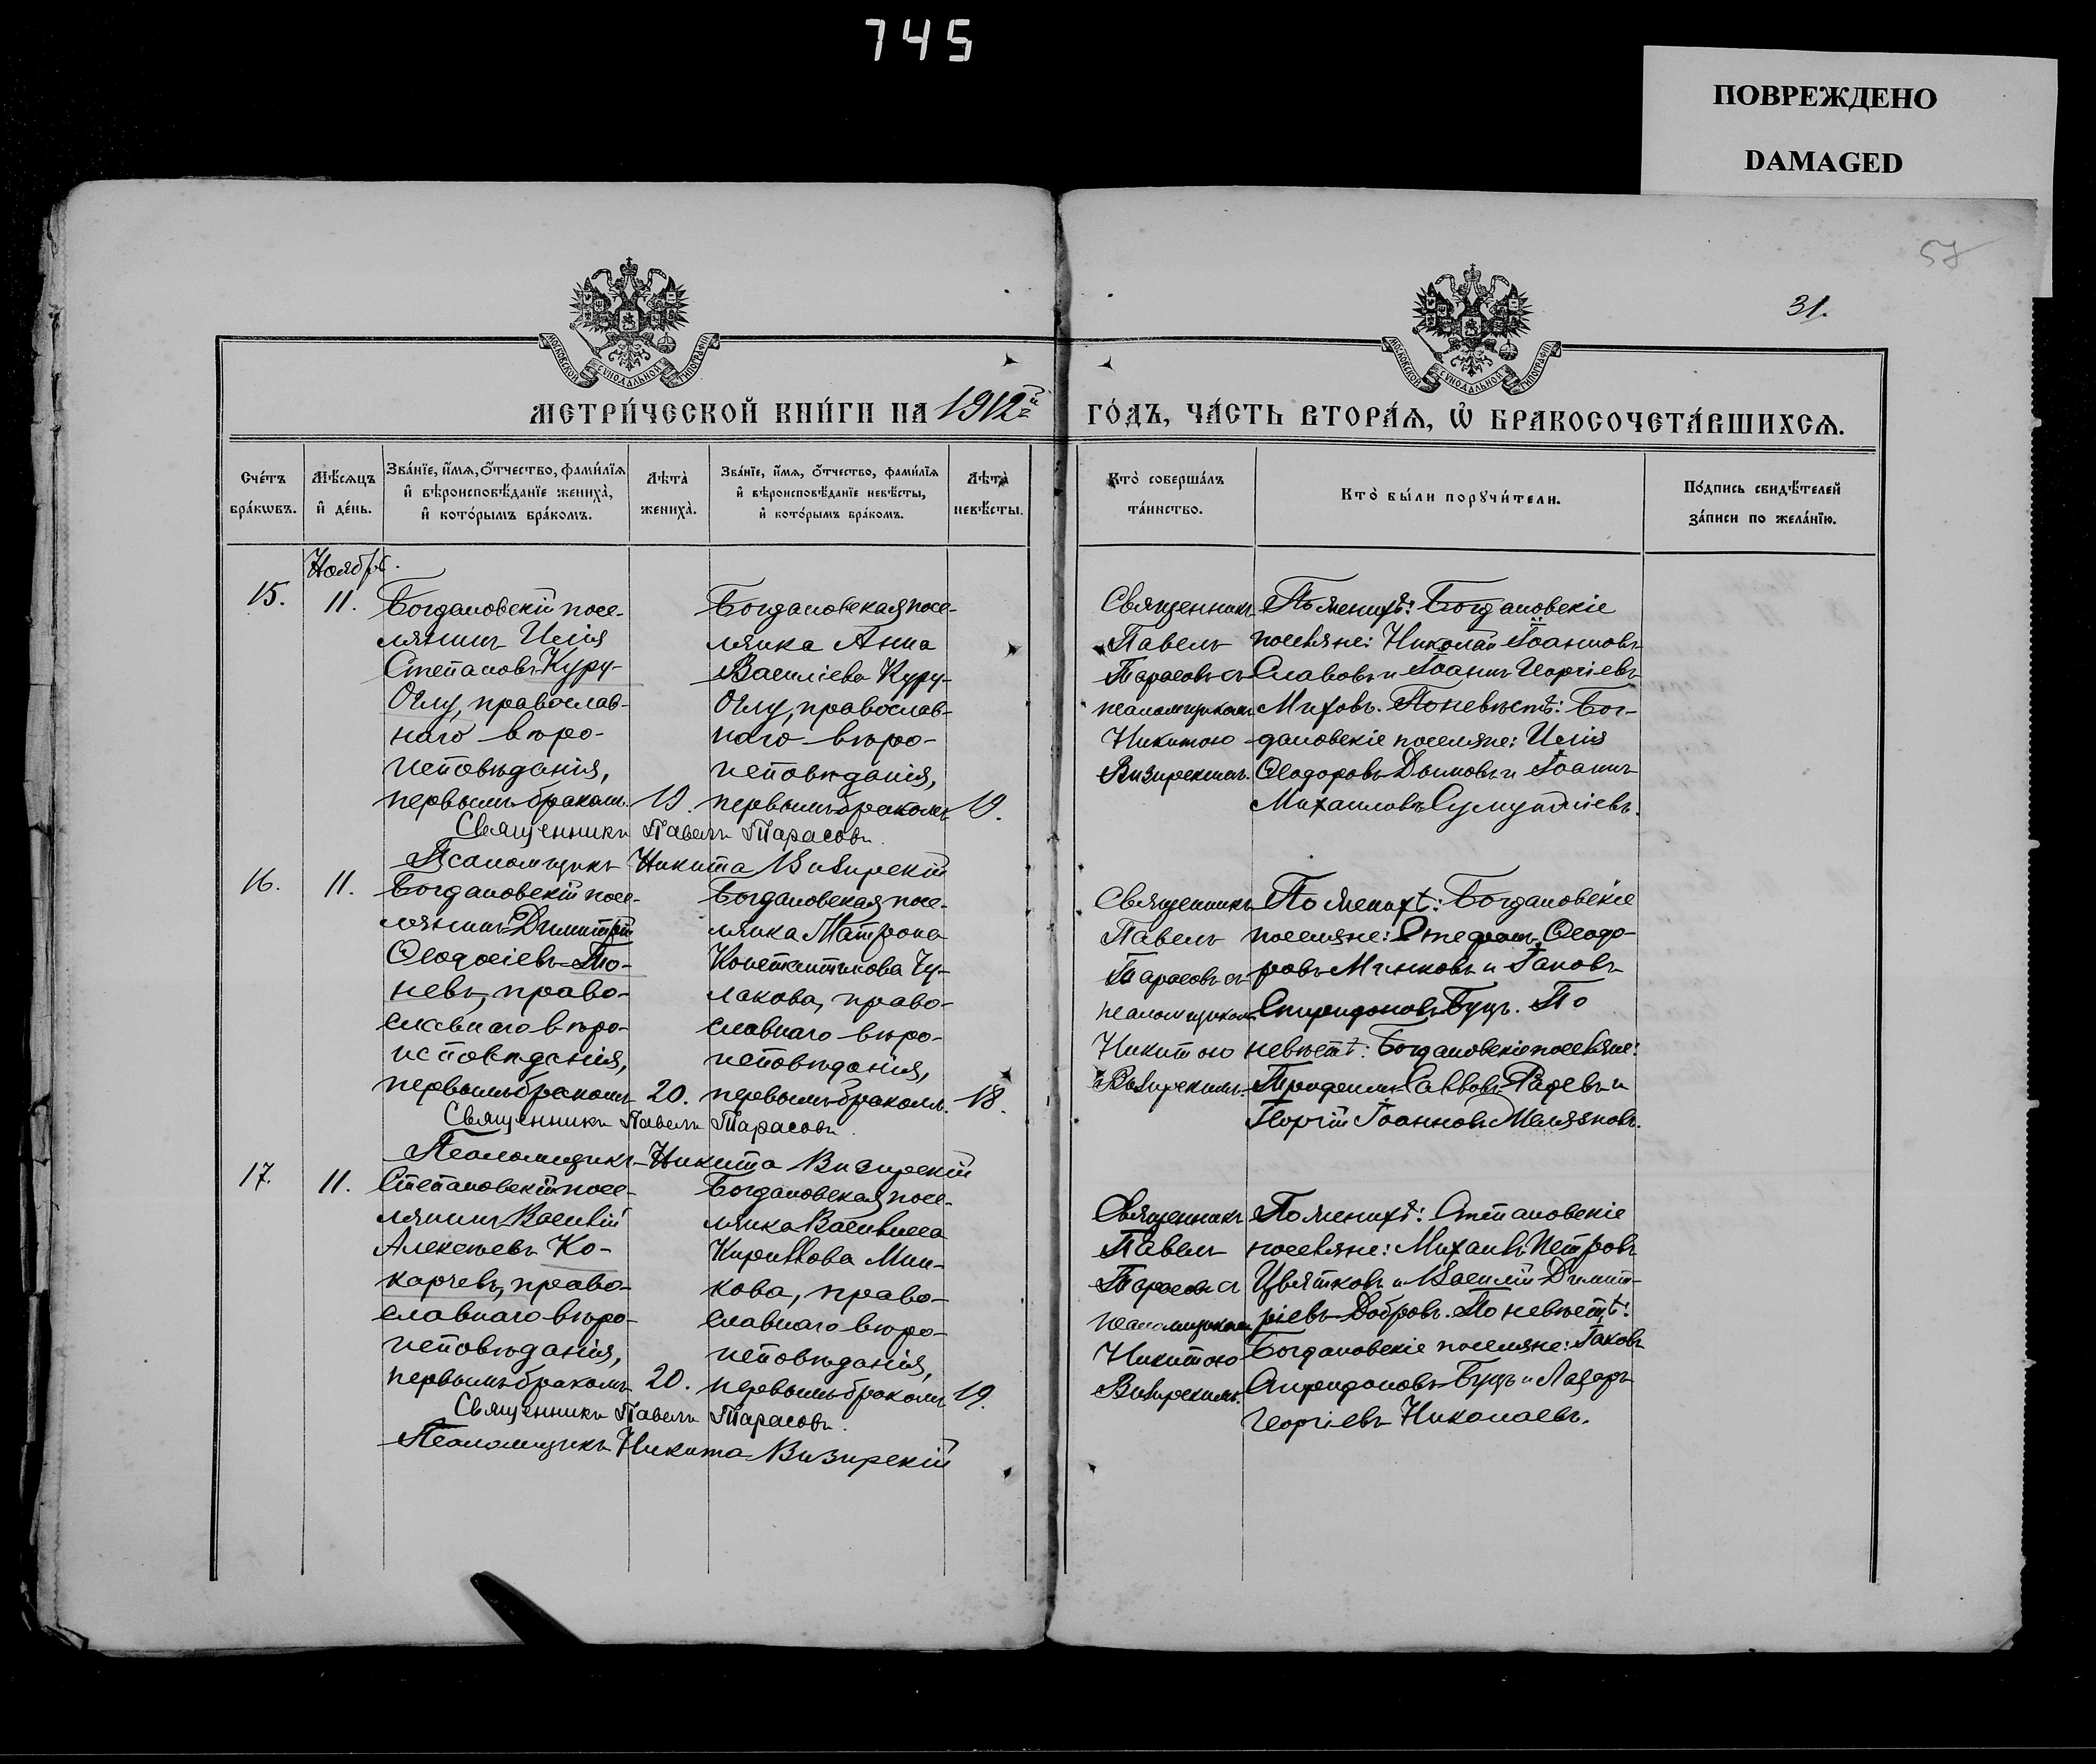 745
ПОВРЕЖДЕНО
DAMAGED
57
31.
МОСКОВСКОЙ СУНОДАЛЬНОЙ ТИПОГРАФІИ
МОСКОВСКОЙ СУНОДАЛЬНОЙ ТИПОГРАФІИ
МЕТРИ́ЧЕСКОЙ КНИ́ГИ НА 1912й
ГО́ДЪ, ЧА́СТЬ ВТОРА́Ѧ, Ѽ БРАКОСОЧЕТА́ВШИХСѦ.
Сче́тъ
бра́кѡвъ.
Мѣ́сѧцъ
и҆ де́нь.
Зва́нїе, и҆́мѧ, ѻ҆́тчество, фами́лїѧ
и҆ вѣроисповѣ́данїе жениха̀,
и҆ кото́рымъ бра́комъ.
Лѣ́та̀
жениха̀.
Зва́нїе, и҆́мѧ, ѻ҆́тчество, фами́лїѧ
и҆ вѣроисповѣ́данїе невѣ́сты,
и҆ кото́рымъ бра́комъ.
Лѣ́та̀
невѣ́сты.
Кто̀ соверша́лъ
та́инство.
Кто̀ бы́ли порꙋчи́тели.
По́дпись свидѣ́телей
за́писи по жела́нїю.
Ноябрь.
15.
11.
Богдановскій посе-
лянинъ Илія
Степановъ Куру-
Оглу, православ-
наго вѣро-
исповѣданія,
первымъ бракомъ
19.
Богдановская посе-
лянка Анна
Василіева Куру-
Оглу, православ-
наго вѣро-
исповѣданія,
первымъ бракомъ
19.
Священникъ
Павелъ
Тарасовъ съ
псаломщикомъ
Никитою
Визирскимъ.
По женихѣ: Богдановскіе
поселяне: Николай Іоанновъ
Славовъ и Іоаннъ Георгіевъ
Миховъ. По невѣстѣ: Бог-
дановскіе поселяне: Илія
Ѳеодоровъ Дымовъ и Іоаннъ
Михаиловъ
Священникъ Павелъ Тарасовъ.
Псаломщикъ Никита Визирскій
16.
11.
Богдановскій посе-
лянинъ Димитрій
Ѳеодосіевъ То-
невъ, право-
славнаго вѣро-
исповѣданія,
первымъ бракомъ
20.
Богдановская посе-
лянка Матрона
Константинова Чу-
лакова, право-
славнаго вѣро-
исповѣданія,
первымъ бракомъ.
18.
Священникъ
Павелъ
Тарасовъ съ
псаломщикомъ
Никитою
Визирскимъ.
По женихѣ: Богдановскіе
поселяне: Стефанъ Ѳеодо-
ровъ Минковъ и Іаковъ
Спиридоновъ Буцъ. По
невѣстѣ: Богдановскіе поселяне:
Саввовъ Радевъ и
Георгій Іоанновъ
Священникъ Павелъ Тарасовъ.
Псаломщикъ Никита Визирскій
17.
11.
Степановскій посе-
лянинъ Василій
Алексѣевъ Ко-
карчевъ, право-
славнаго вѣро-
исповѣданія,
первымъ бракомъ
20.
Богдановская посе-
лянка Василисса
Кириллова Мин-
кова, право-
славнаго вѣро-
исповѣданія,
первымъ бракомъ
19.
Священникъ
Павелъ
Тарасовъ съ
псаломщикомъ
Никитою
Визирскимъ.
По женихѣ: Степановскіе
поселяне: Михаилъ Петровъ
Цвятковъ и Василій Димит-
ріевъ Добровъ. По невѣстѣ:
Богдановскіе поселяне: Іаковъ
Спиридоновъ Буцъ и Лазарь
Георгіевъ Николаевъ.
Священникъ Павелъ Тарасовъ.
Псаломщикъ Никита Визирскій